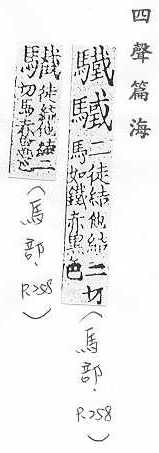 四聲篇海
驖
二徒結他結二切
馬如鐵赤黑色
(馬部. P.258)
徒結他結二
切馬赤黑色
(馬部. P.258)